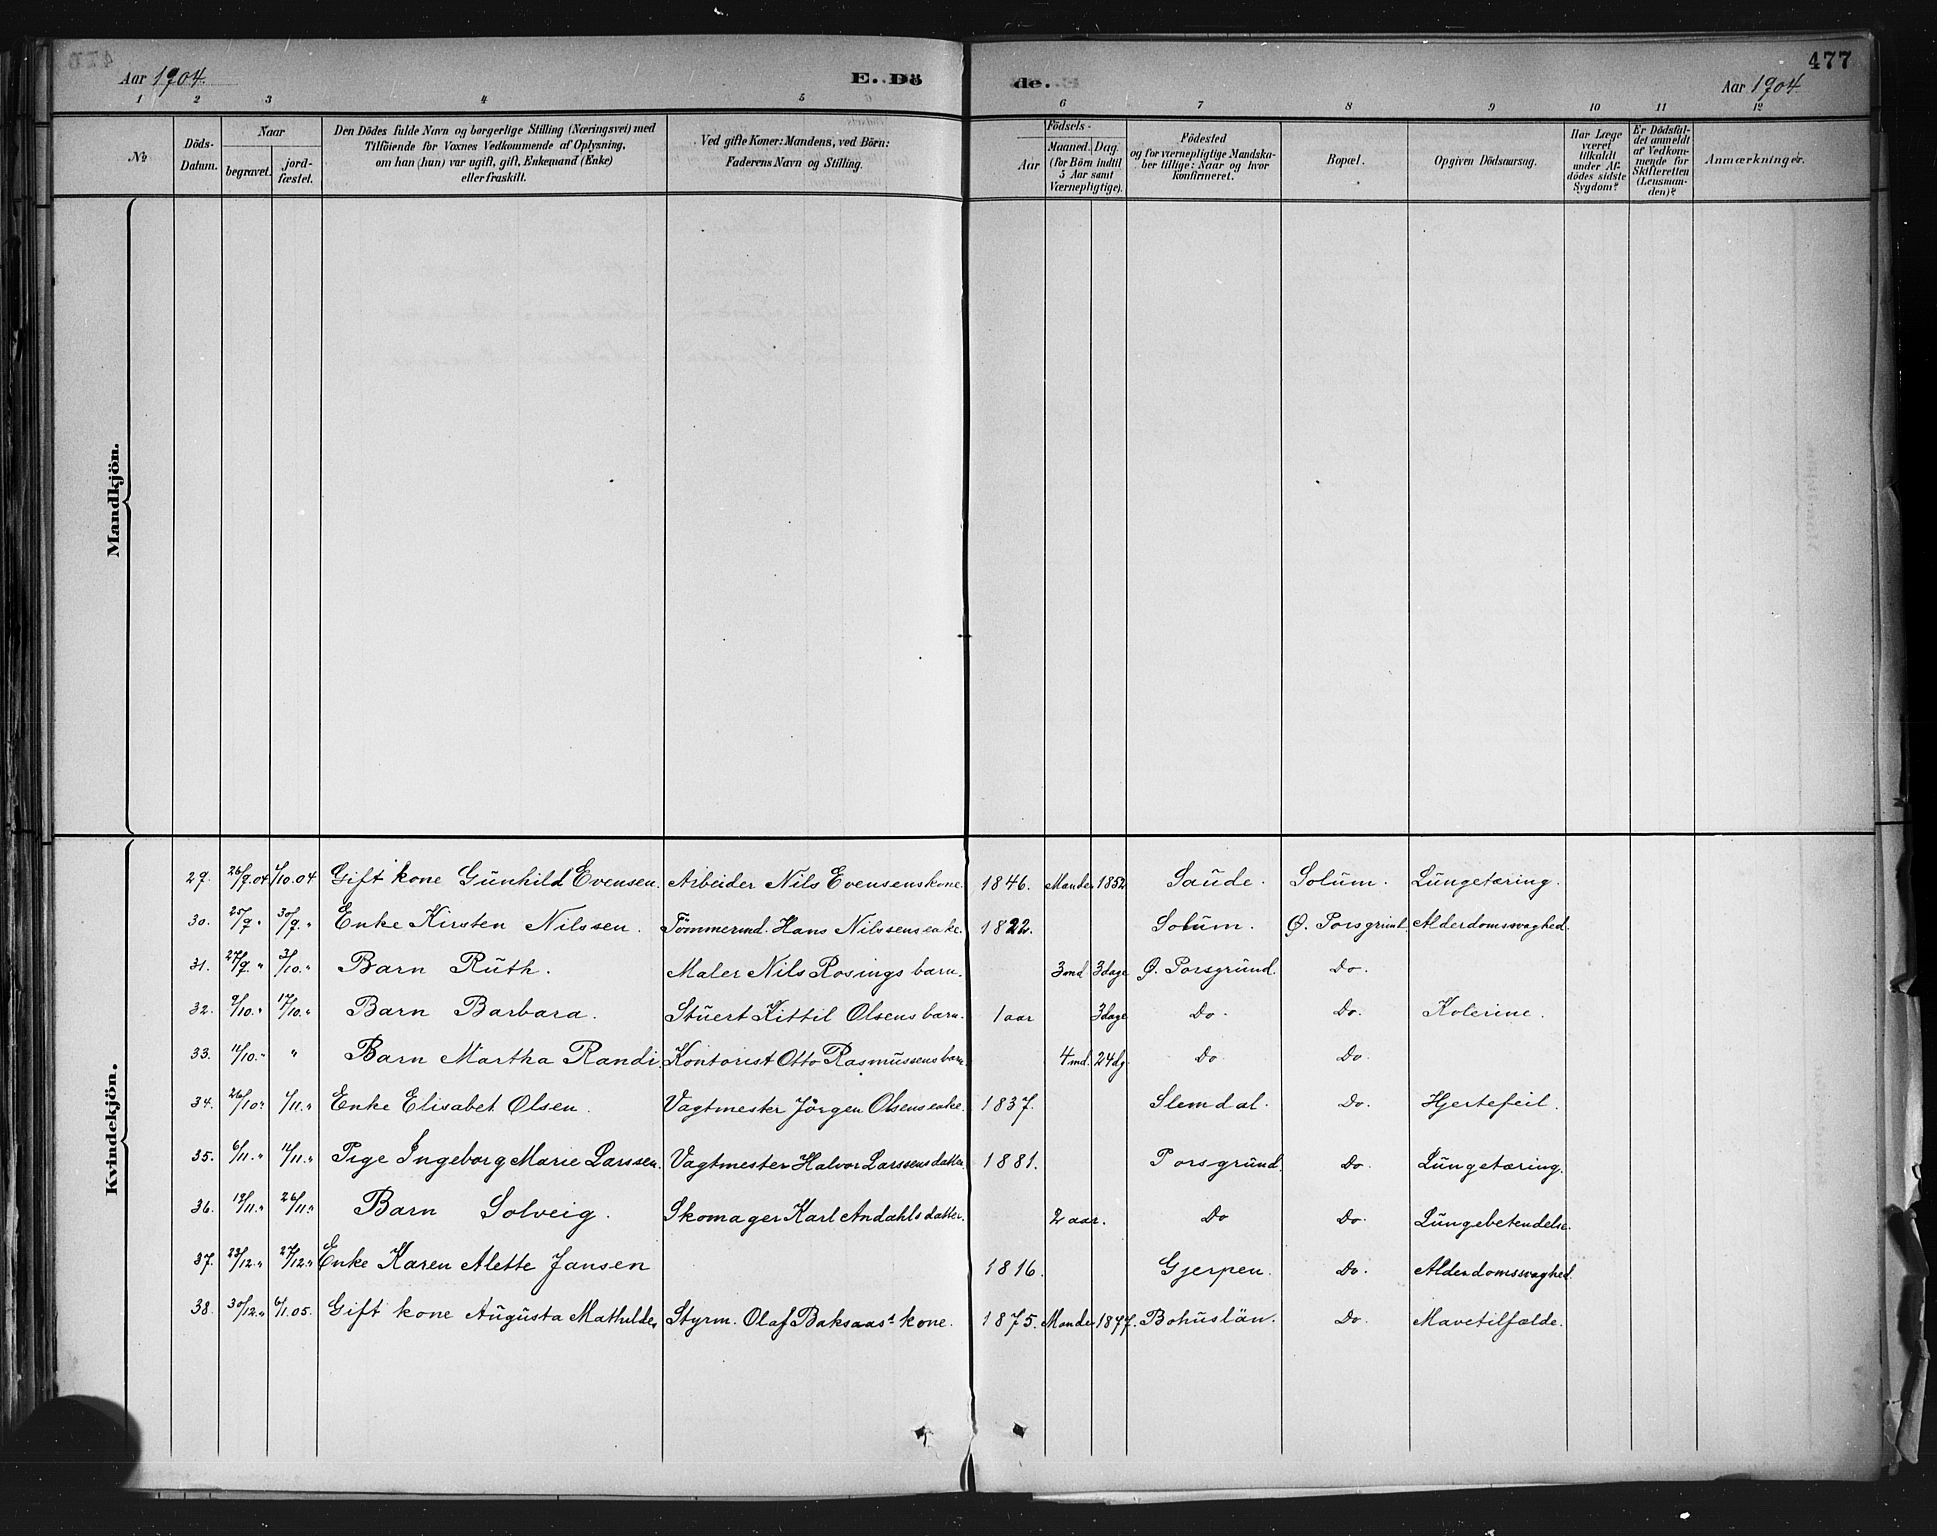 Aar 1904. E. Dö de. 477
Aar 1904.
1 2 3 4 5 6 7 8 9 10 11 12
No
Döds-
Datum.
Naar
begravet.
jord-
fæstet.
Den Dödes fulde Navn og borgerlige Stilling (Næringsvei) med
Tilföiende for Voxnes Vedkommende af Oplysning,
om han (hun) var ugift, gift, Enkemand (Enke)
eller fraskilt.
Ved gifte Koner: Mandens, ved Börn:
Faderens Navn og Stilling.
Födsels-
Aar
Maaned. Dag.
(for Börn indtil
5 Aar samt
Værnepligtige).
Födested
og for værnepligtige Mandska-
ber tillige: Naar og hvor
konfirmeret.
Bopæl.
Opgiven Dödsaarsag.
Har Læge
været
tilkaldt
under Af-
dödes sidste
Sygdom?
Er Dödsfal-
det anmeldt
af Vedkom-
mende for
Skifteretten
(Lensman-
den)?
Anmærkninger.
Mandkjön.
Kvindekjön.
29. 26/9.04 1/10.04 Gift kone Gunhild Evensen. Arbeider Nils Evensens kone. 1846. Mander 1852 Saude. Solum. Lungetæring.
30. 25/9 " 30/9. " Enke Kirsten Nilssen. Tömmermd. Hans Nilssens enke. 1822. Solum. Ø. Porsgrund. Alderdomssvaghed.
31. 27/9. " 3/10. " Barn Ruth. Maler Nils Rosings barn. 3 md 3 dage Ø. Porsgrund. Do.
32. 9/10. " 17/10. " Barn Barbara. Stuert Kittil Olsens barn. 1 aar 3 dage Do. Do. Kolerine.
33. 11/10. " " Barn Martha Randi. Kontorist Otto Rasmussens barn. 4 md. 24 dg. Do Do
34. 26/10 " 1/11. " Enke Elisabet Olsen. Vagtmester Jörgen Olsens enke. 1837. Slemdal. Do. Hjertefeil.
35. 6/11. " 11/11. " Pige Ingeborg Marie Larssen. Vagtmester Halvor Larssens datter. 1881. Porsgrund. Do. Lungetæring.
36. 19/11. " 26/11. " Barn Solveig. Skomager Karl Andahls datter. 2 aar. Do Do. Lungebetendelse.
37. 23/12. " 27/12. " Enke Karen Alette Jansen 1816. Gjerpen. Do. Alderdomssvaghed.
38. 30/12. " 6/1.05. Gift kone Augusta Mathilde, Styrm. Olaf Baksaas's kone. 1875. Mander 1877. Bohuslän. Do. Mavetilfælde.